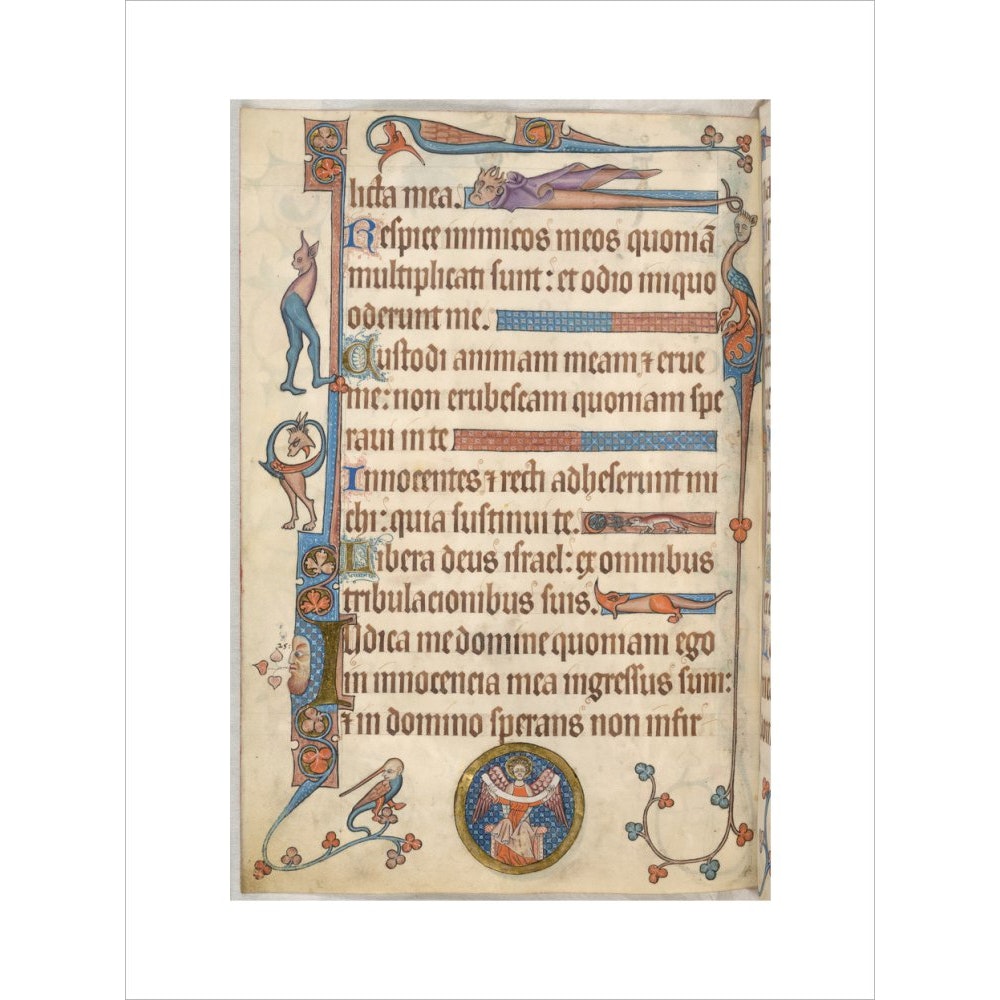 licta mea.
Respice inimicos meos quoniã
multiplicati sunt: et odio iniquo
oderunt me.
Custodi animam meam ⁊ erue
me: non erubescam quoniam spe
raui in te
Innocentes ⁊ recti adheserunt mi
chi: quia sustinui te.
Libera deus israel: ex omnibus
tribulacionibus suis.
Iudica me domine quoniam ego
in innocencia mea ingressus sum:
⁊ in domino sperans non infir